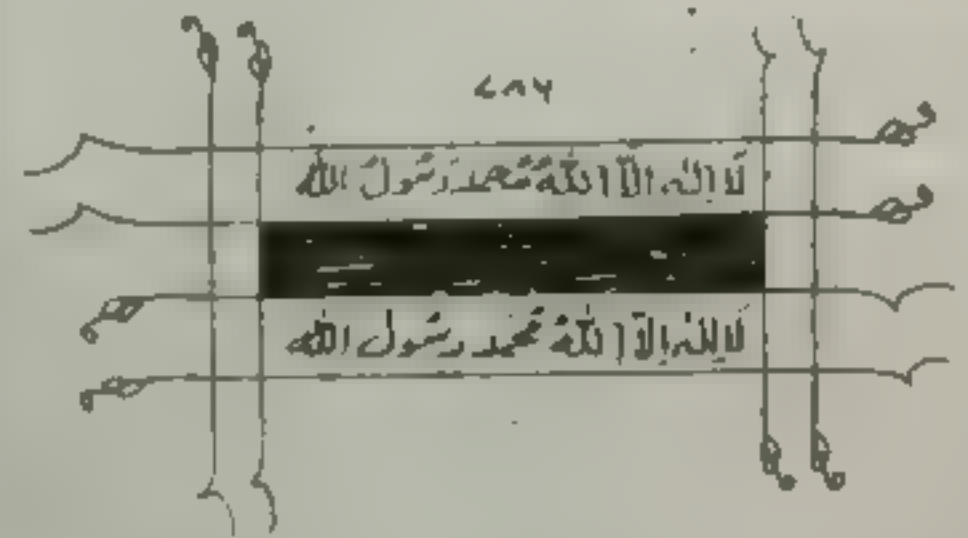 ۷۸۶
لَا اِلٰهَ اِلَّا اللّٰهُ مُحَمَّدٌ رَسُولُ اللّٰه
لَا اِلٰهَ اِلَّا اللّٰهُ مُحَمَّدٌ رَسُولُ اللّٰه